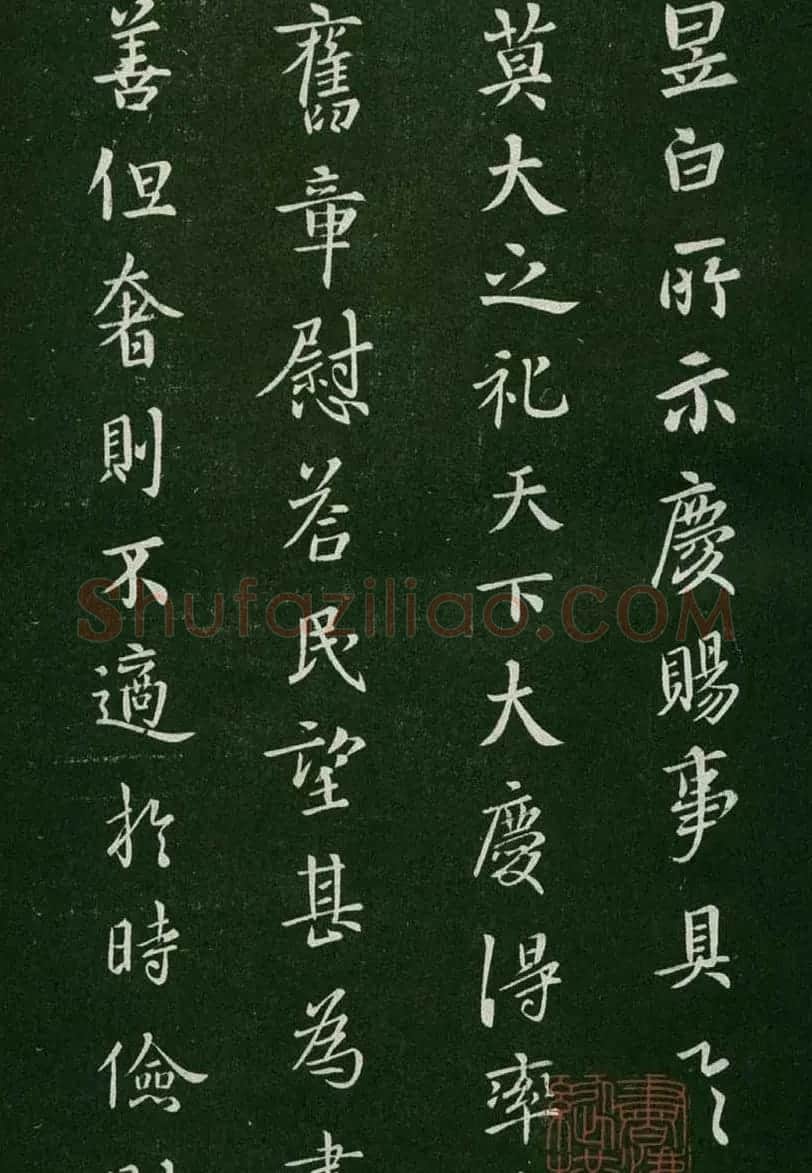 昱白所示慶賜事具
莫大之祀天下大慶得率
舊章慰荅民望甚為
善但奢則不適於時儉
Shufaziliao.COM